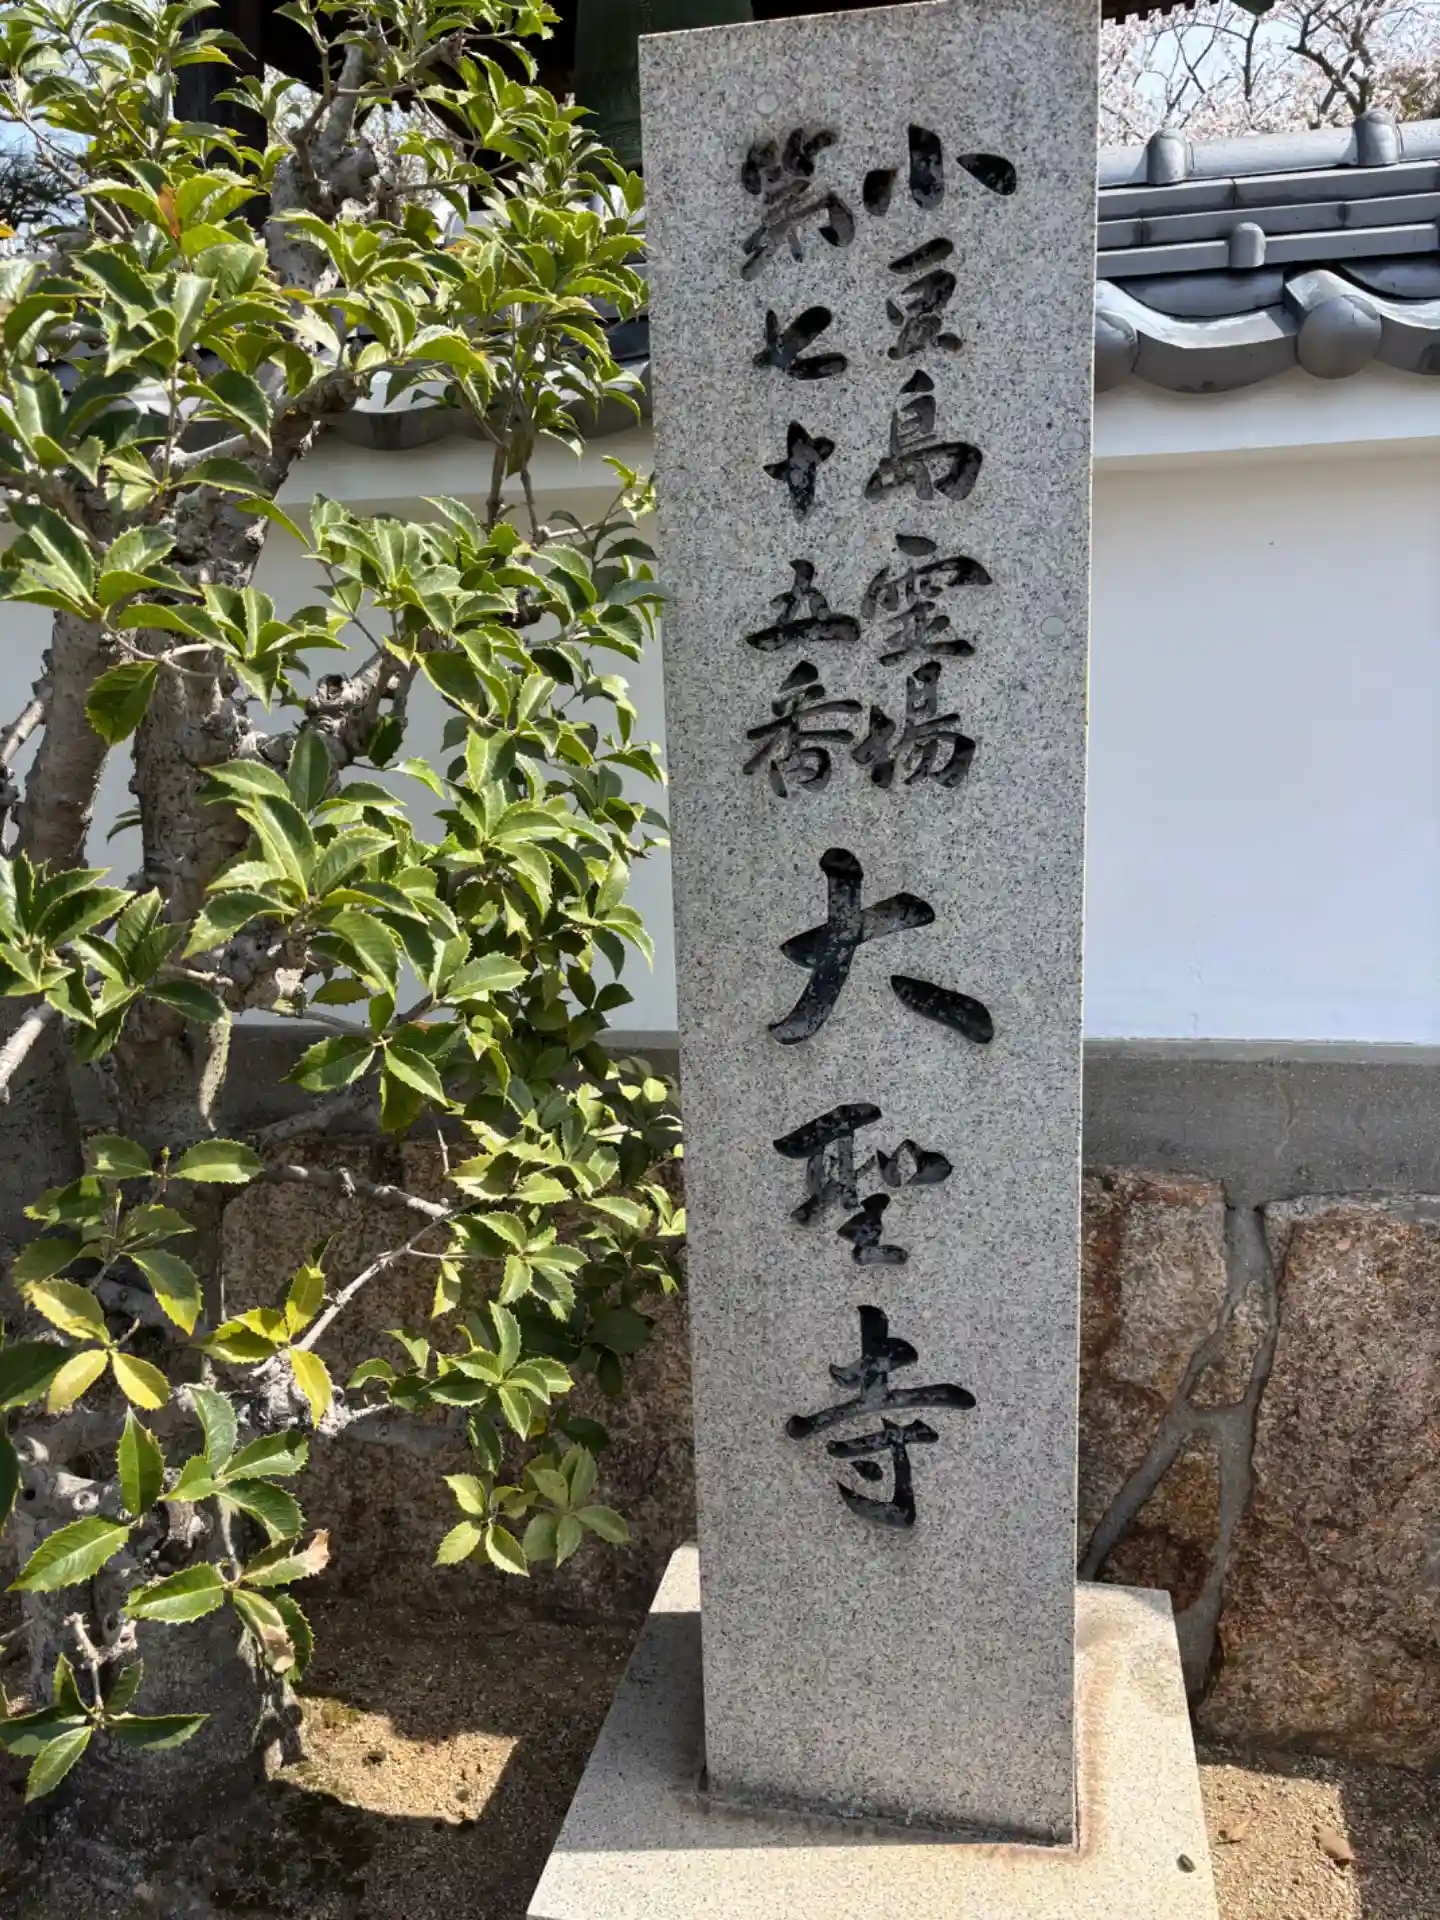 小豆島霊場
第七十五番
大聖寺